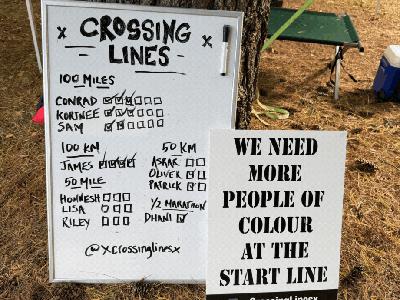 x CROSSING x
LINES
100 MILES
CONRAD
KORTNEE
SAM
100 KM
JAMES
50 MILE
LISA
RILEY
50 KM
ASKAR
OLIVER
PATRICK
1/2 MARATHON
DHANI
@xcrossinglinesx
WE NEED
MORE
PEOPLE OF
COLOUR
AT THE
START LINE